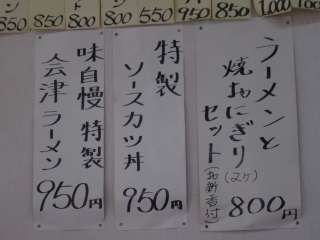 850
850
800
800
550
950
850
1,000
ラーメンと
焼おにぎり
セット(2ヶ)
(お新香付)
800円
特製
ソースカツ丼
950円
味自慢 特製
会津ラーメン
950円